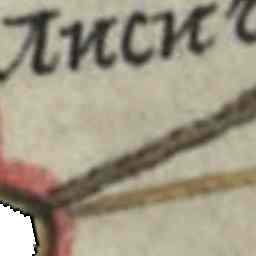 Лисич